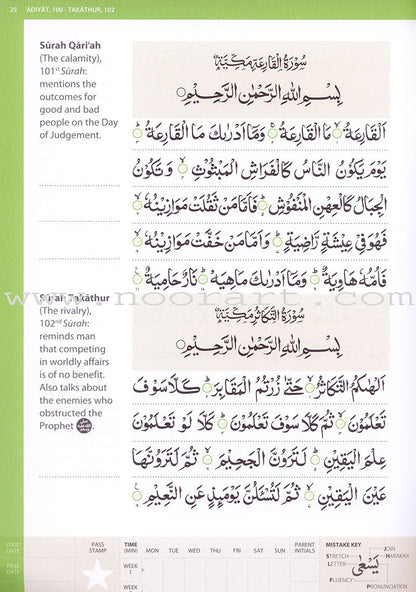 25 'ĀDIYĀT, 100 - TAKĀTHUR, 102
Sūrah Qāri'ah
(The calamity),
101st Sūrah:
mentions the
outcomes for
good and bad
people on the Day
of Judgement.
سُوْرَةُ الْقَارِعَةِ مَكِّيَّةٌ
بِسْمِ اللهِ الرَّحْمٰنِ الرَّحِيْمِ
اَلْقَارِعَةُ مَا الْقَارِعَةُ وَمَآ اَدْرٰىكَ مَا الْقَارِعَةُ
يَوْمَ يَكُوْنُ النَّاسُ كَالْفَرَاشِ الْمَبْثُوْثِ وَتَكُوْنُ
الْجِبَالُ كَالْعِهْنِ الْمَنْفُوْشِ فَاَمَّا مَنْ ثَقُلَتْ مَوَازِيْنُهٗ
فَهُوَ فِيْ عِيْشَةٍ رَّاضِيَةٍ وَاَمَّا مَنْ خَفَّتْ مَوَازِيْنُهٗ
فَاُمُّهٗ هَاوِيَةٌ وَمَآ اَدْرٰىكَ مَاهِيَهْ نَارٌ حَامِيَةٌ
www.noorart.com
Sūrah Takāthur
(The rivalry),
102nd Sūrah:
reminds man
that competing
in worldly affairs
is of no benefit.
Also talks about
the enemies who
obstructed the
Prophet
سُوْرَةُ التَّكَاثُرِ مَكِّيَّةٌ
بِسْمِ اللهِ الرَّحْمٰنِ الرَّحِيْمِ
اَلْهٰىكُمُ التَّكَاثُرُ حَتّٰى زُرْتُمُ الْمَقَابِرَ كَلَّا سَوْفَ
تَعْلَمُوْنَ ثُمَّ كَلَّا سَوْفَ تَعْلَمُوْنَ كَلَّا لَوْ تَعْلَمُوْنَ
عِلْمَ الْيَقِيْنِ لَتَرَوُنَّ الْجَحِيْمَ ثُمَّ لَتَرَوُنَّهَا
عَيْنَ الْيَقِيْنِ ثُمَّ لَتُسْئَلُنَّ يَوْمَئِذٍ عَنِ النَّعِيْمِ
START DATE
PASS DATE
PASS STAMP
TIME (MIN) MON TUE WED THU FRI SAT SUN
WEEK 1
WEEK
PARENT INITIALS
MISTAKE KEY
JOIN
STRETCH HARAKAH
LETTER يَسْعٰى
FLUENCY PRONUNCIATION